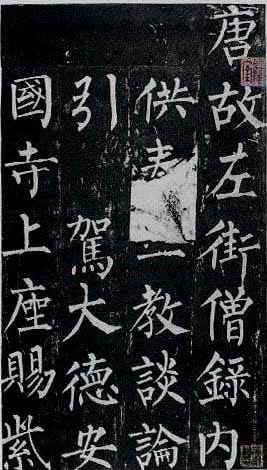 唐故左街僧錄内
供一教談論
引駕大德安
國寺上座賜紫